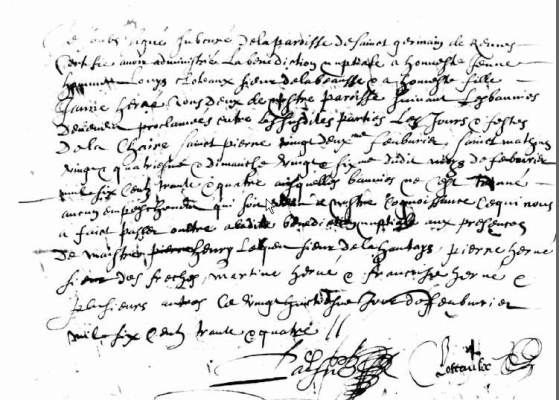 Je soubz signé subcuré de la paroisse de sainct germain de Rennes
Certifie avoir administré la benediction nuptiale a honneste Jenne
homme Louys sieur de la et a honneste fille
Janne hervé tous deux de nostre paroisse suivant les bannies
devement proclamees entre les susdites parties Les Jours et festes
de la Chaire sainct pierre vingt deux me feuburier sainct mathias
vingt quatriesme et dimanche vingt six me dudit mois de feuburier
mile six Centz trante et quatre ausquelles bannies ne s'est trouvé
aucun empeschement qui soit a nostre Cognoissance Ce qui nous
a faict passer oultre a ladite benediction nuptialle aux presences
de maistre henry sieur de la pierre hervé
sieur des martine hervé et francoise hervé et
plusieurs autres Ce vingt huictiesme Jour de feuburier
mile six Centz trante et quatre //